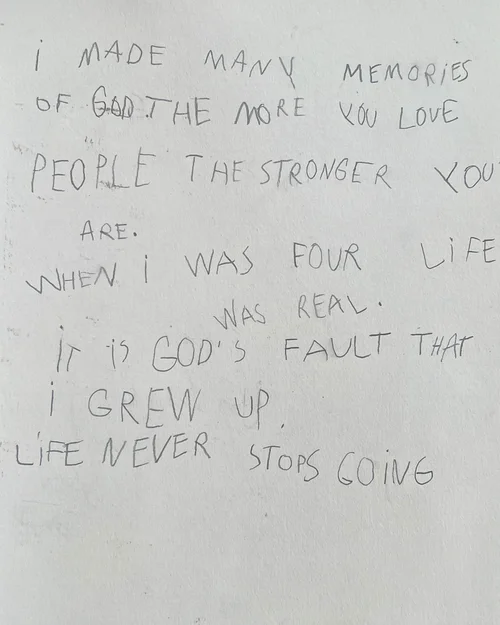 i MADE MANY MEMORiES
OF GOD. THE MORE YOU LOVE
PEOPLE THE STRONGER YOU
ARE.
WHEN i WAS FOUR LiFE
WAS REAL.
iT iS GOD'S FAULT THAT
i GREW UP.
LiFE NEVER STOPS GOiNG